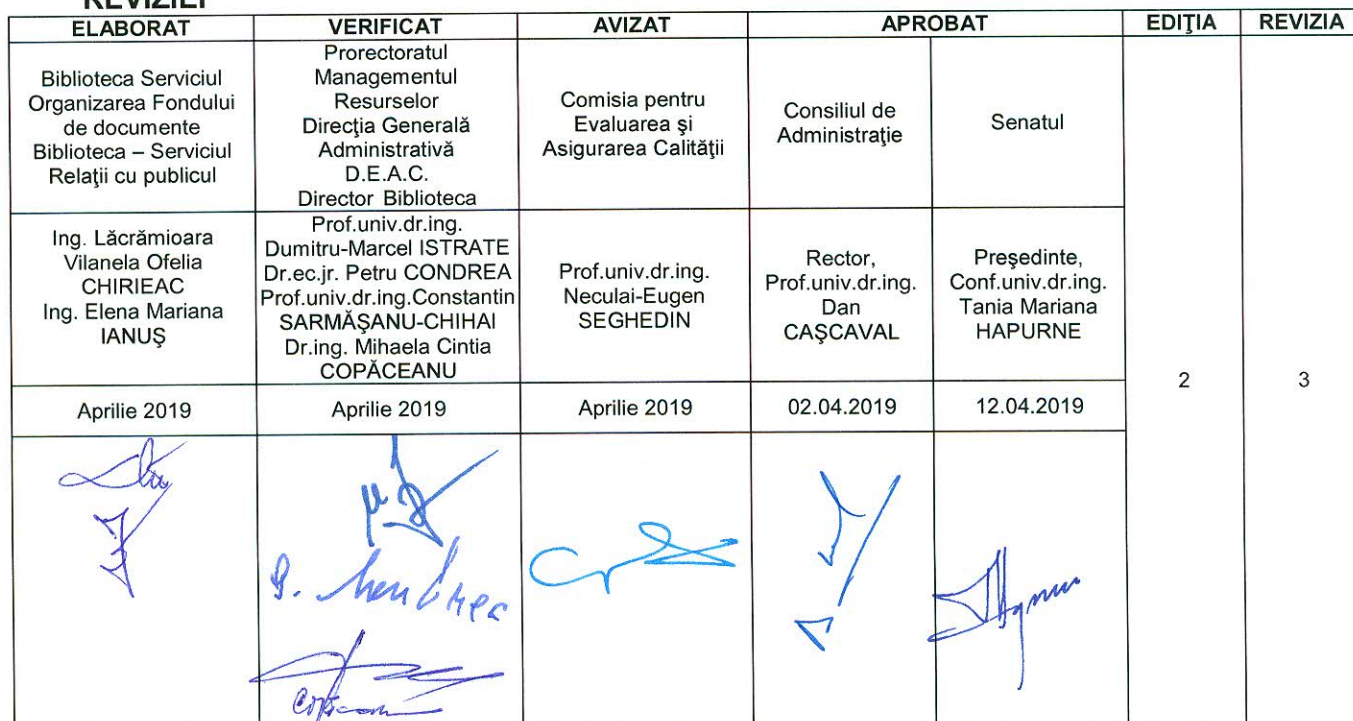 REVIZIEI
ELABORAT VERIFICAT AVIZAT APROBAT EDIŢIA REVIZIA
Biblioteca Serviciul
Organizarea Fondului
de documente
Biblioteca – Serviciul
Relaţii cu publicul
Prorectoratul
Managementul
Resurselor
Direcţia Generală
Administrativă
D.E.A.C.
Director Biblioteca
Comisia pentru
Evaluarea şi
Asigurarea Calităţii
Consiliul de
Administraţie
Senatul
Ing. Lăcrămioara
Vilanela Ofelia
CHIRIEAC
Ing. Elena Mariana
IANUŞ
Prof.univ.dr.ing.
Dumitru-Marcel ISTRATE
Dr.ec.jr. Petru CONDREA
Prof.univ.dr.ing.Constantin
SARMĂŞANU-CHIHAI
Dr.ing. Mihaela Cintia
COPĂCEANU
Prof.univ.dr.ing.
Neculai-Eugen
SEGHEDIN
Rector,
Prof.univ.dr.ing.
Dan
CAŞCAVAL
Preşedinte,
Conf.univ.dr.ing.
Tania Mariana
HAPURNE
2
3
Aprilie 2019 Aprilie 2019 Aprilie 2019 02.04.2019 12.04.2019